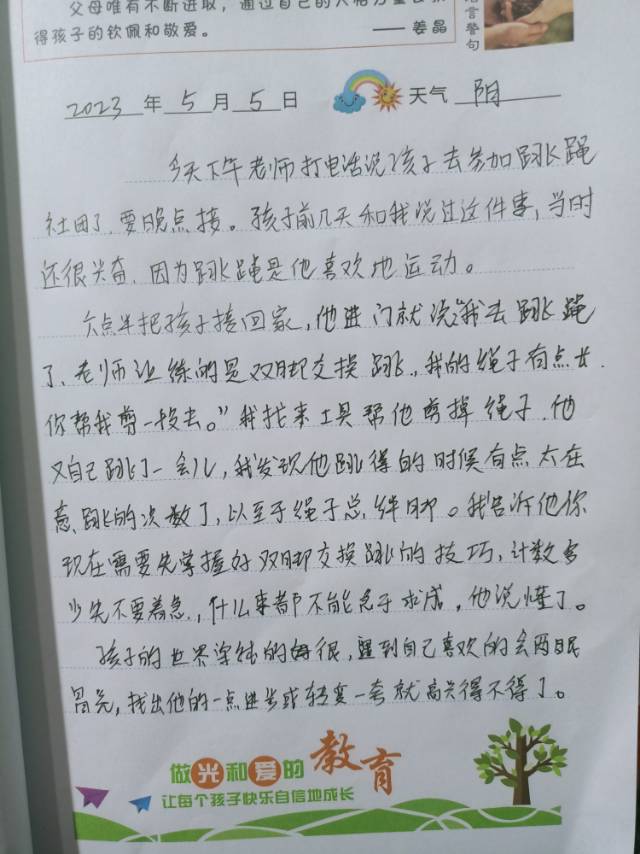 父母唯有不断进取，通过自己的人格力量
得孩子的钦佩和敬爱。 ——姜晶
言警句
2023 年 5 月 5 日 天气 阴
今天下午老师打电话说孩子去参加跳绳
社团了，要晚点接。孩子前几天和我说过这件事，当时
还很兴奋，因为跳绳是他喜欢地运动。
六点半把孩子接回家，他进门就说“我去跳绳
了、老师让练的是双脚交换跳，我的绳子有点长，
你帮我剪一段去。”我找来工具帮他剪掉绳子，他
又自己跳了一会儿，我发现他跳得的时候有点太在
意跳的次数了，以至于绳子总绊脚。我告诉他你
现在需要先掌握好双脚交换跳的技巧，计数多
少先不要着急，什么事都不能急于求成，他说懂了。
孩子的世界单纯的好很，遇到自己喜欢的会两眼
冒光，找出他的一点进步或夸一夸就高兴得不得了。
做光和爱的教育
让每个孩子快乐自信地成长